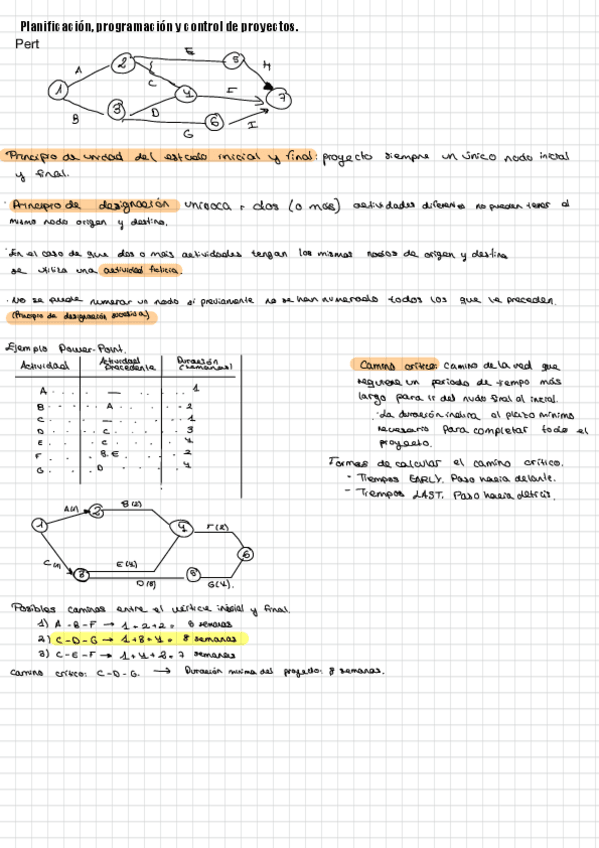 Planificación, programación y control de proyectos.
Pert
A
B
C
D
E
F
G
H
I
1
2
3
4
5
6
7
Principio de unidad del estado inicial y final: proyecto siempre un único nodo inicial
y final.
· Principio de designación unívoca: dos (o más) actividades diferentes no pueden tener el
mismo nodo origen y destino.
· En el caso de que dos o más actividades tengan los mismos nodos de origen y destino
se utiliza una actividad ficticia.
· No se puede numerar un nodo si previamente no se han numerado todos los que le preceden.
(Principio de designación sucesiva)
Ejemplo Power-Point.
Actividad Actividad Precedente Duración (semanas)
A - 1
B A 2
C - 1
D C 3
E C 4
F B, E 2
G D 4
Camino crítico: camino de la red que
requiere un periodo de tiempo más
largo para ir del nudo final al inicial.
· La duración indica el plazo mínimo
necesario para completar todo el
proyecto.
Formas de calcular el camino crítico.
- Tiempos EARLY. Paso hacia delante.
- Tiempos LAST. Paso hacia detrás.
1
A(1)
2
B(2)
4
F(2)
6
C(1)
3
E(4)
D(3)
5
G(4).
Posibles caminos entre el vértice inicial y final.
1) A-B-F → 1+2+2= 5 semanas
2) C-D-G → 1+3+4= 8 semanas
3) C-E-F → 1+4+2= 7 semanas
Camino crítico: C-D-G. → Duración mínima del proyecto: 8 semanas.